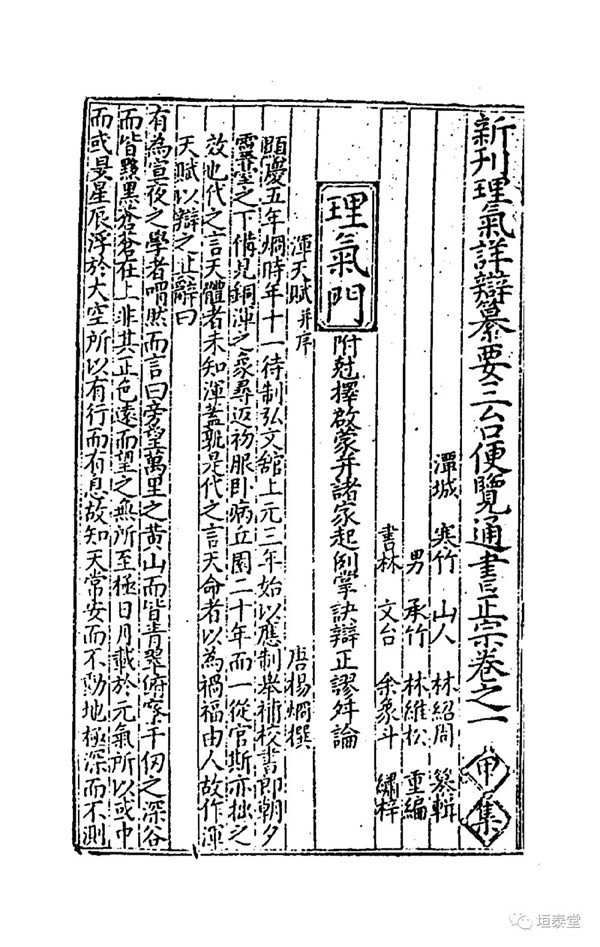 新刊理氣詳辯纂要三台便覽通書正宗卷之一 甲集
潭城 寒竹 山人 林紹周 纂輯
男 承竹 林維松 重編
書林 文台 余象斗 繡梓
理氣門
附尅擇啟蒙并諸家起例掌訣辯正謬舛論
渾天賦并序 唐楊烱撰
顯慶五年烱時年十一待制弘文舘上元三年始以應制舉補校書郎朝夕
靈臺之下備見銅渾之象尋返初服卧病丘園二十年而一從官斯亦拙之
效也代之言天體者未知渾蓋孰是代之言天命者以為禍福由人故作渾
天賦以辯之其辭曰
有為宣夜之學者喟然而言曰旁望萬里之黄山而皆青翠俯察千仞之深谷
而皆黝黑蒼蒼在上非其正色遠而望之無所至極日月載於元氣所以或中
而或昃星辰浮於太空所以有行而有息故知天常安而不動地極深而不測
垣泰堂